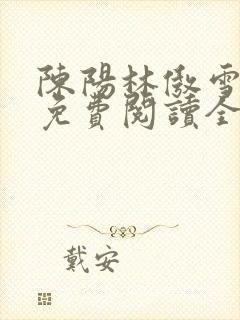 陳陽林傲雪
免費閱讀全
戴安